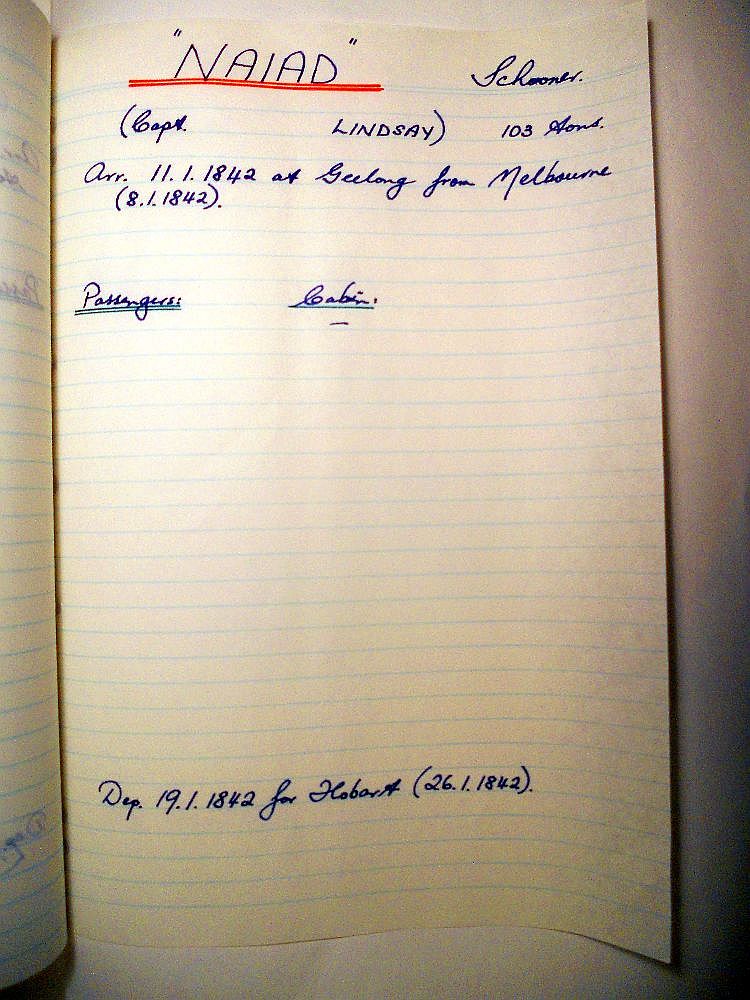 "NAIAD" Schooner.
(Capt. LINDSAY) 103 tons.
Arr. 11.1.1842 at Geelong from Melbourne
(8.1.1842).
Passengers: Cabin.
—
Dep. 19.1.1842 for Hobart (26.1.1842).